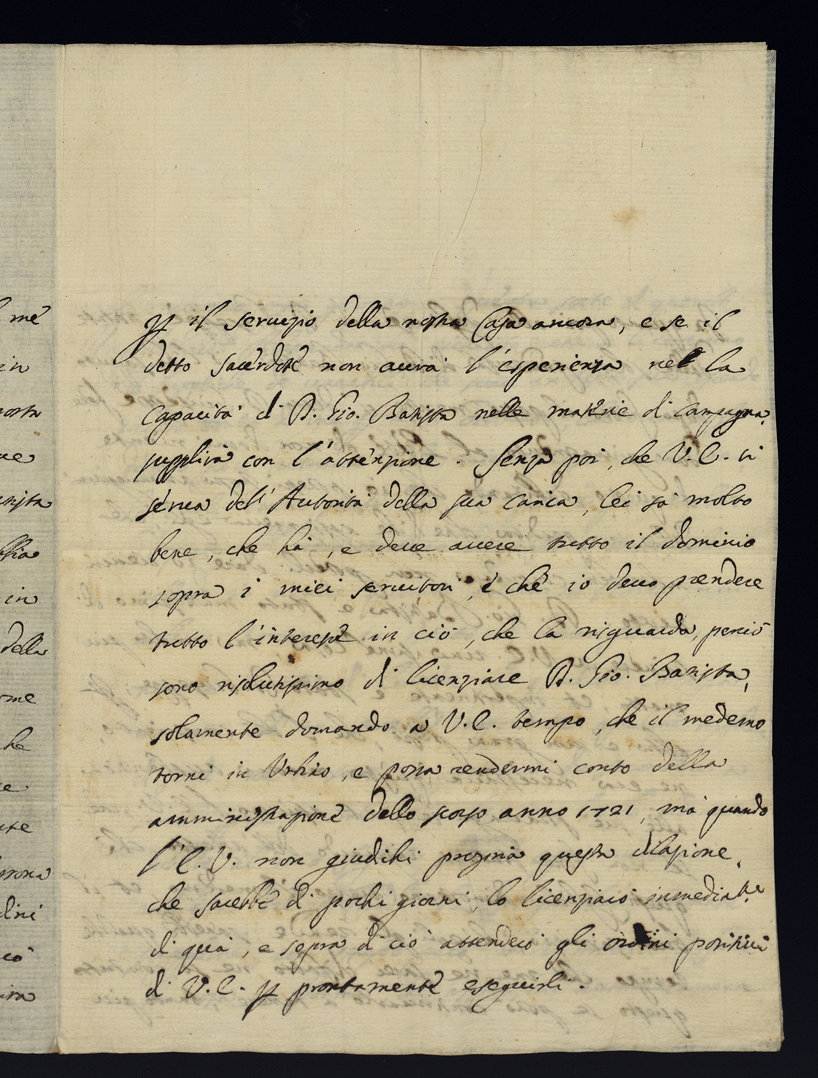 l mé
in
della
ome
he
dini
ꝑ il seruizio della nostra Casa ancora, e se il
detto Sacerdote non auerà l'esperienza nel la
Capacità di D. Gio. Batista nelle materie di Campagna,
supplirà con l'attenzione. Senza poi, che V.E. si
serua dell'Autorità della sua Carica, lei sà molto
bene, che hà, e deue auere tutto il dominio
sopra i miei seruitori, e che io deuo prendere
tutto l'interesse in ciò, che la riguarda, perciò
sono risolutissimo di licenziare D. Gio. Batista,
solamente domando a V.E. tempo, che il medemo
torni in Urbino, e possa rendermi conto della
amministrazione dello scorso anno 1721, mà quando
l'E.V. non giudichi propria questa dilazione,
che sarebbe di pochi giorni, lo licenziarò immediate.
di quà, e sopra di ciò attenderò gli ordini positiui
di V.E. ꝑ prontamente eseguirli.